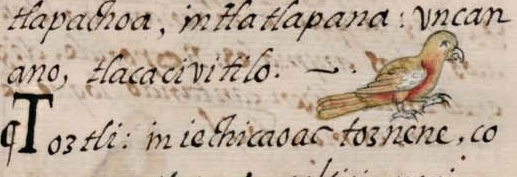 tlapachoa, intlatlapana: vncan
ano, tlacacivitilo.
¶Toztli: in iechicaoac toznene, co